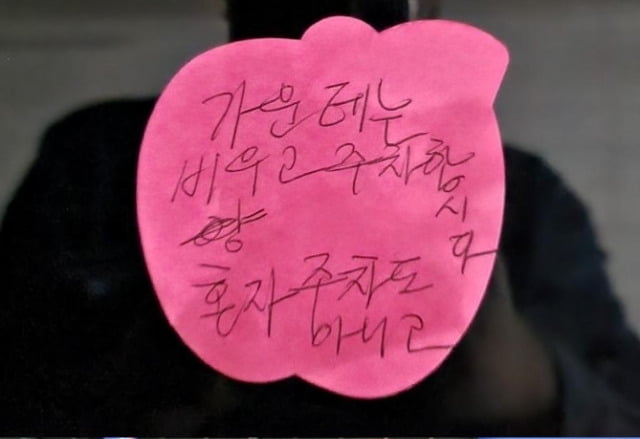 가운데는
비우고 주차합시다
혼자 주차도
아니고